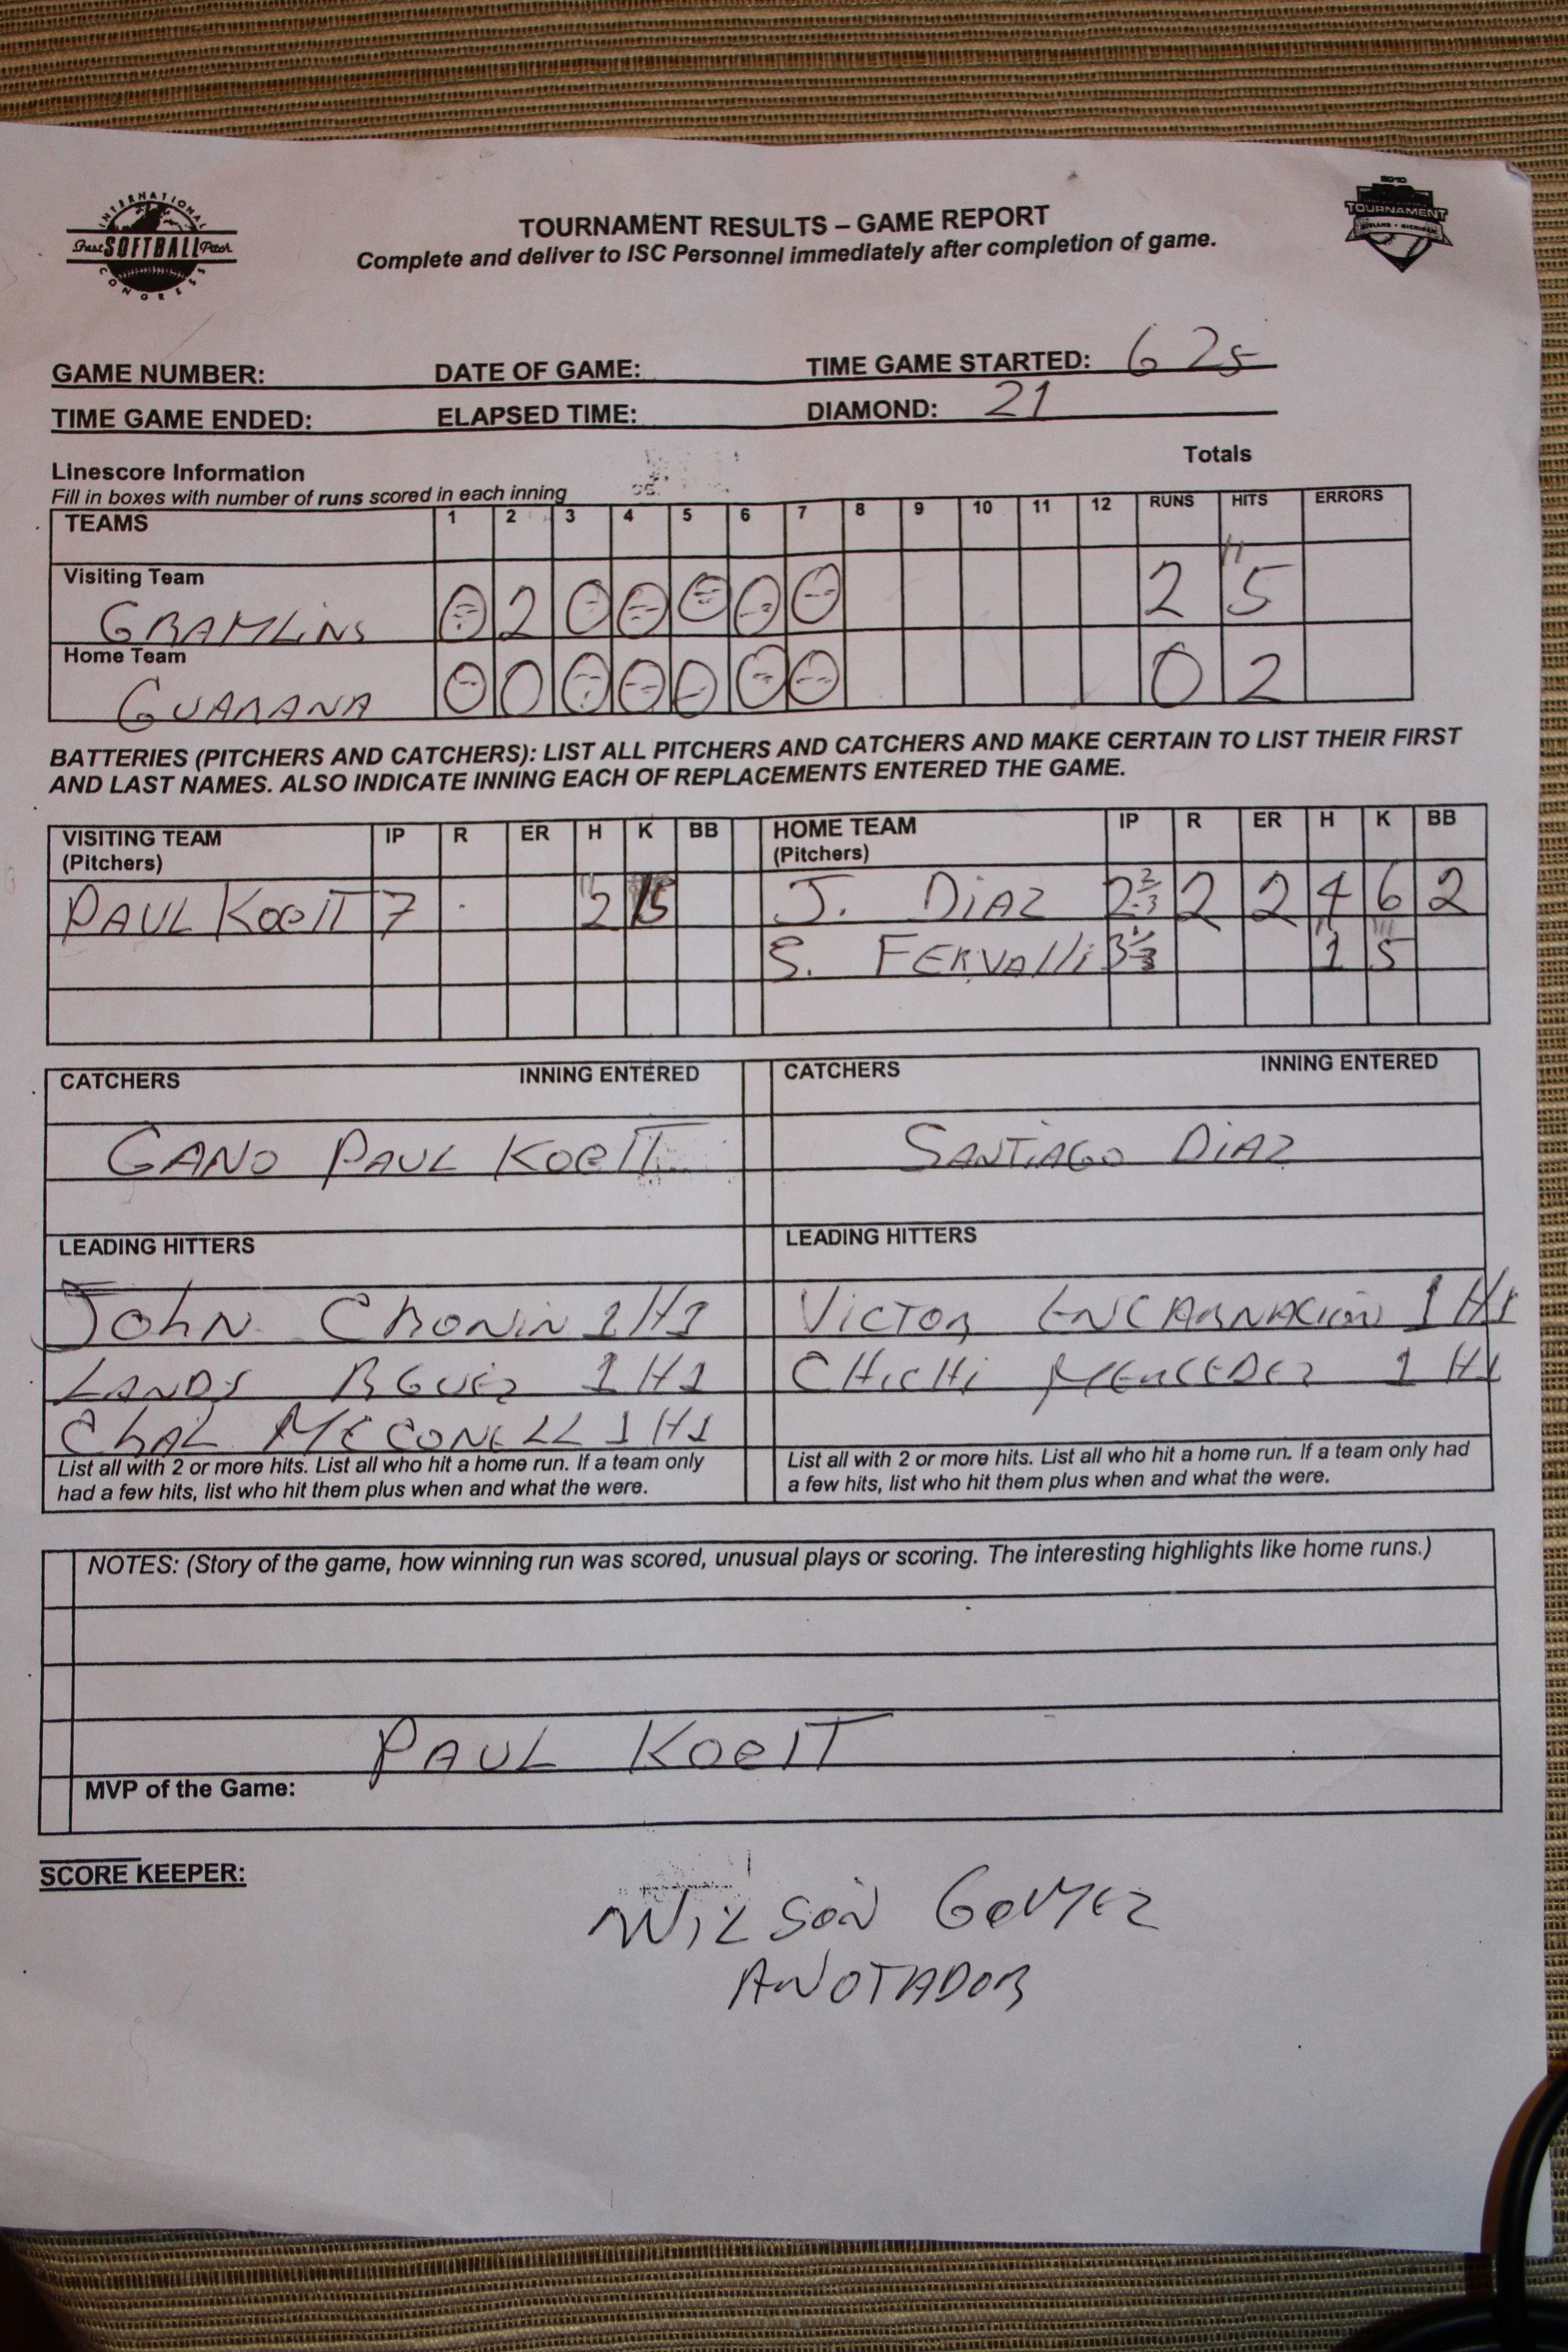 INTERNATIONAL
Fast SOFTBALL Pitch
CONGRESS
2010
TOURNAMENT
MIDLAND • MICHIGAN
TOURNAMENT RESULTS – GAME REPORT
Complete and deliver to ISC Personnel immediately after completion of game.
GAME NUMBER: DATE OF GAME: TIME GAME STARTED: 6 25
TIME GAME ENDED: ELAPSED TIME: DIAMOND: 21
Totals
Linescore Information
Fill in boxes with number of runs scored in each inning
TEAMS 1 2 3 4 5 6 7 8 9 10 11 12 RUNS HITS ERRORS
Visiting Team
GRAMLINS 0 2 0 0 0 0 0 2 5
Home Team
GUARANA 0 0 0 0 0 0 0 0 2
BATTERIES (PITCHERS AND CATCHERS): LIST ALL PITCHERS AND CATCHERS AND MAKE CERTAIN TO LIST THEIR FIRST
AND LAST NAMES. ALSO INDICATE INNING EACH OF REPLACEMENTS ENTERED THE GAME.
VISITING TEAM IP R ER H K BB HOME TEAM IP R ER H K BB
(Pitchers) (Pitchers)
PAUL KOEIT 7 2 15 J. DIAZ 2 2/3 2 2 4 6 2
S. FERVAlli 3 1/3 1 5
CATCHERS INNING ENTERED CATCHERS INNING ENTERED
GANO PAUL KOEIT SANTIAGO DIAZ
LEADING HITTERS LEADING HITTERS
JOHN CRONIN 1 H1 VICTOR ENCARNACION 1 H1
LANDS RGUEZ 1 H1 CHICHI MERCEDEZ 1 H1
CHAL MECONELL 1 H1
List all with 2 or more hits. List all who hit a home run. If a team only List all with 2 or more hits. List all who hit a home run. If a team only had
had a few hits, list who hit them plus when and what the were. a few hits, list who hit them plus when and what the were.
NOTES: (Story of the game, how winning run was scored, unusual plays or scoring. The interesting highlights like home runs.)
PAUL KOEIT
MVP of the Game:
SCORE KEEPER:
WILSON GOMEZ
ANOTADOR